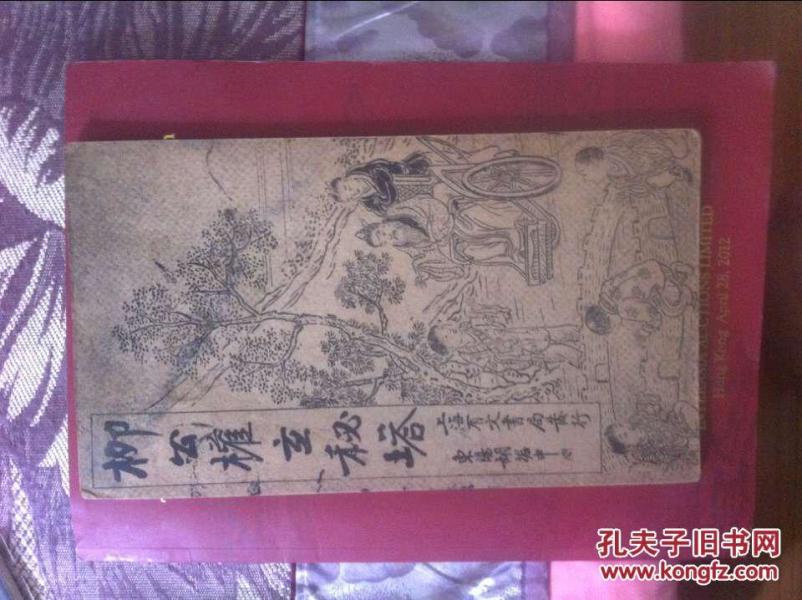 柳公權玄秘塔
上海天文書局發行
AUCTIONS LIMITED
Hong Kong April 28, 2012
孔夫子旧书网
www.kongfz.com